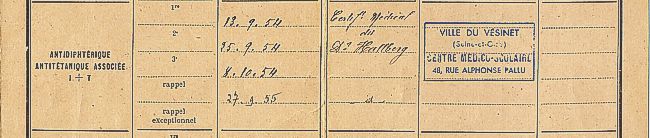 1re
13.9.54
Certif. Médical
2e
du
VILLE DU VÉSINET
ANTIDIPHTÉRIQUE
25.9.54
Dr Hallberg
(Seine-et-O.)
ANTITÉTANIQUE ASSOCIÉE
3e
CENTRE MÉDICO-SCOLAIRE
1 + T
8.10.54
48, RUE ALPHONSE PALLU
rappel
27.9.55
id
rappel
exceptionnel